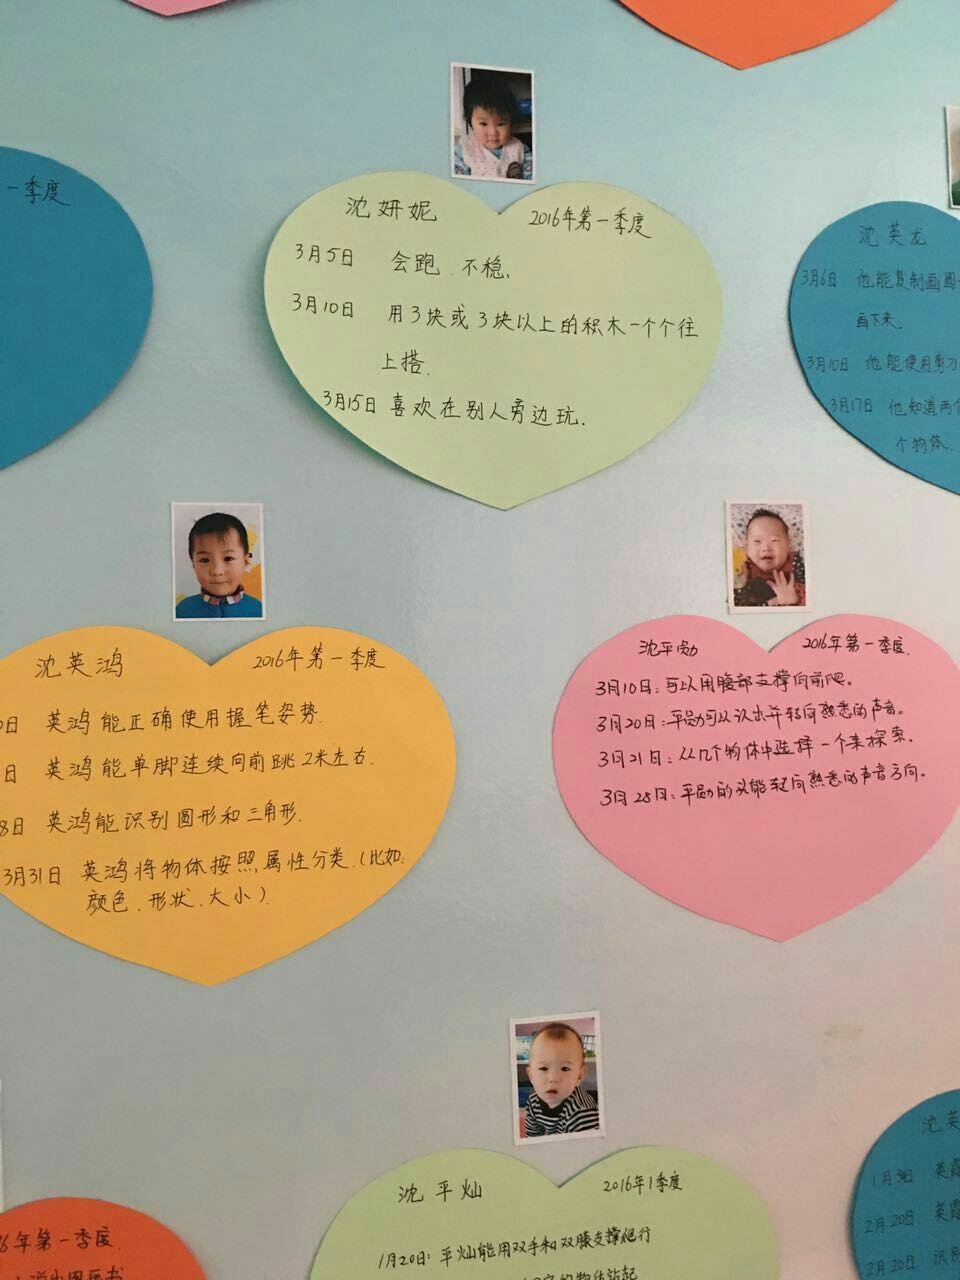 一季度
沈妍妮
2016年第一季度
3月5日 会跑.不稳.
3月10日 用3块或3块以上的积木一个个往
上搭.
3月15日 喜欢在别人旁边玩.
沈英龙
3月6日 他能复制画圆
画下来.
3月10日 他能使用剪刀
3月17日 他知道两个
个物体.
沈英鸿
2016年第一季度
0日 英鸿能正确使用握笔姿势.
日 英鸿能单脚连续向前跳2米左右.
8日 英鸿能识别圆形和三角形.
3月31日 英鸿将物体按照属性分类.(比如:
颜色.形状.大小).
沈平勋
2016年第一季度.
3月10日:可以用腹部支撑向前爬。
3月20日:平勋可以认出并转向熟悉的声音。
3月21日:从几个物体中选择一个来探索。
3月28日:平勋的头能转向熟悉的声音方向。
沈平灿
2016年1季度
1月20日:平灿能用双手和双膝支撑爬行
的物体站起
6年第一季度.
沈英
1月3日 英霞
2月20日 英霞
2月20日 识别